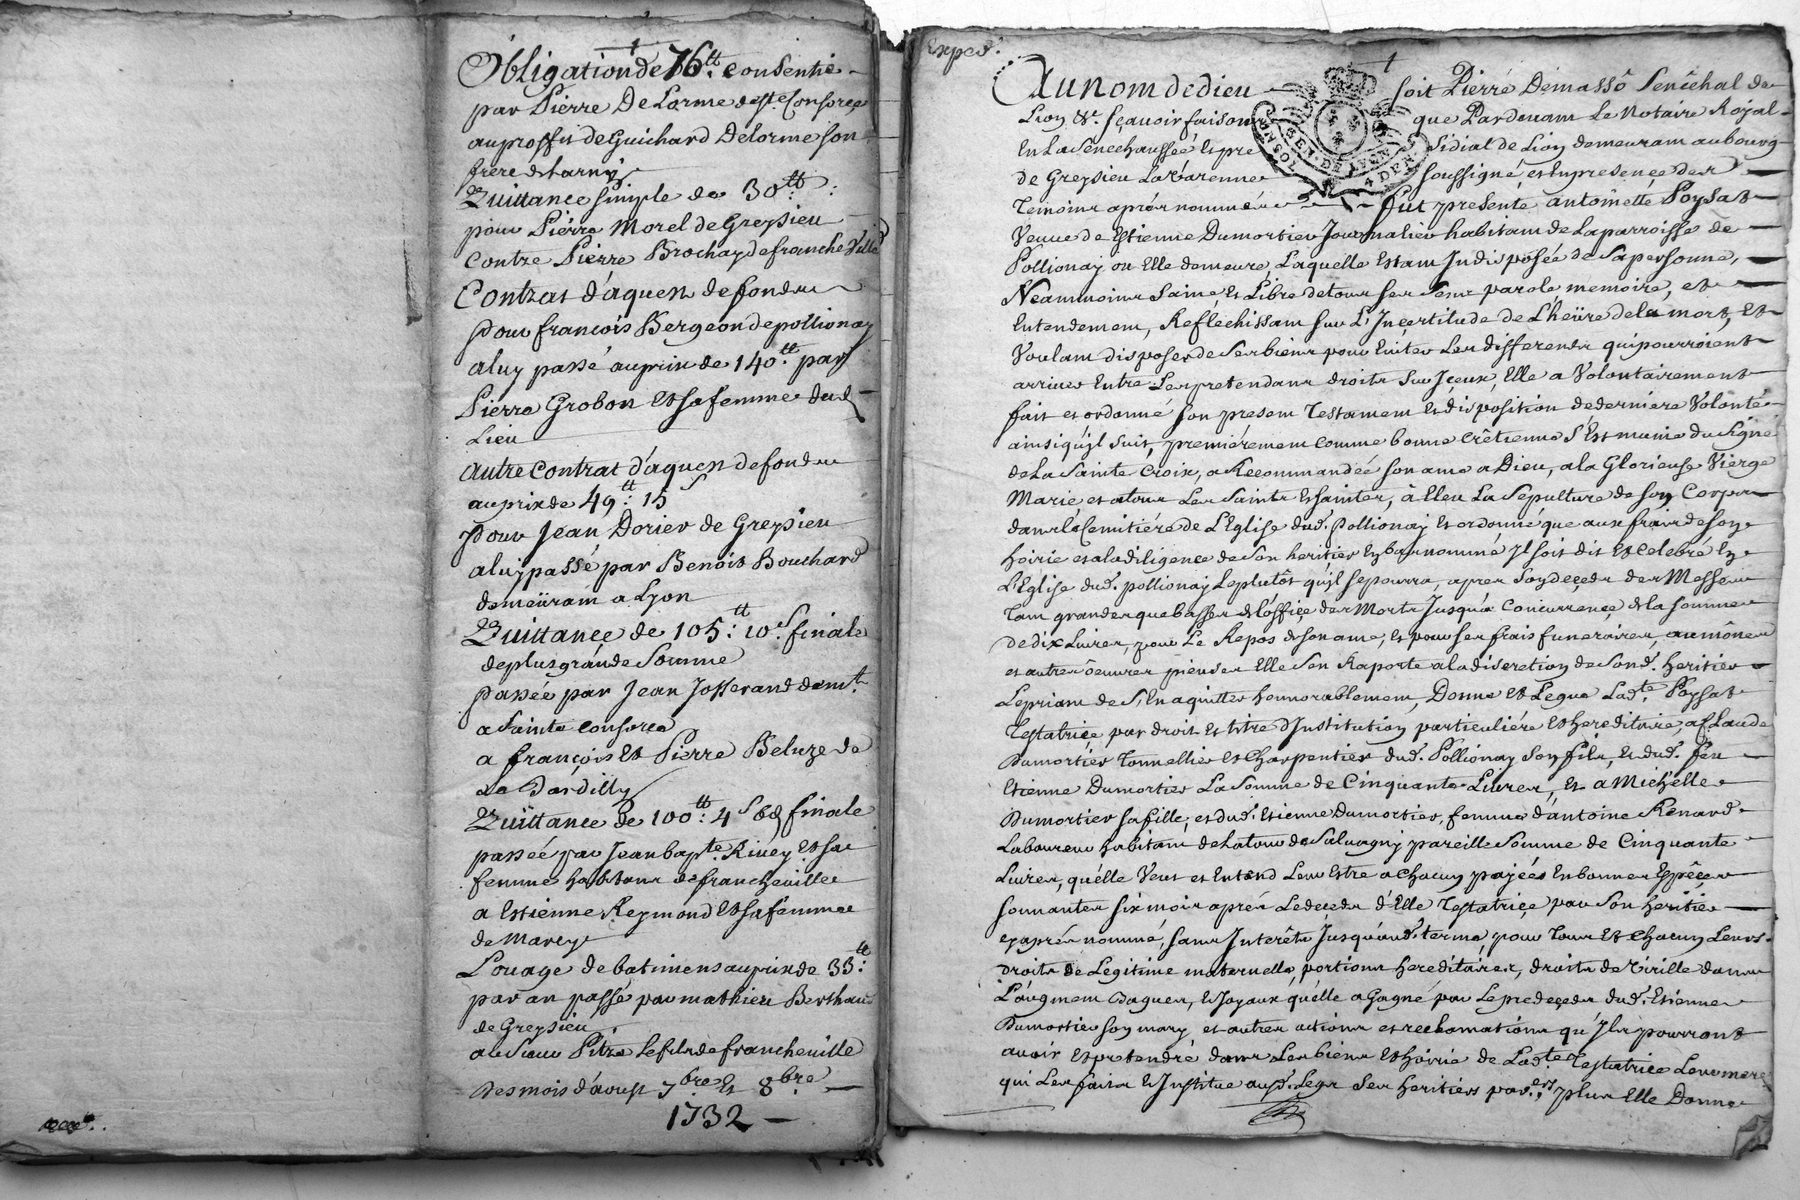 Obligation de 76tt. consentie
par Pierre De Lorme de Ste. Consorce
au proffit de Guichard Delorme son
frere de tarny
Quittance simple de 30tt:
pour Pierre Morel de Greysieu
Contre Pierre Brochay de francheville
Contrat d'aquen de fondu
pour francois Bergeon de pollionay
a luy passé au prix de 140tt. par
Pierre Grobon et sa femme dud.
Lieu
autre Contrat d'aquen de fondu
au prix de 49tt: 15s
pour Jean Dorier de Greysieu
a luy passé par Benoit Bouchard
demeüram a Lyon
Quittance de 105tt: 10s. finale
de plus grande Somme
passée par Jean Josserand demt.
a Sainte consorce
a françois et Pierre Beluze de
de Dardilly
Quïttance de 100tt: 4s 6d finale
passée par Jean bapte. Rivey et sa
femme habitans de francheville
a Estienne Reymond et sa femme
de Marcy
Louage de batimens au prix de 33tt:
par an passé par mathieu Berthaud
de Greysieu
au Sieur Pitra le fils de francheville
des mois d'aoust 7bre et 8bre
1732
Exped.
Au nom de dieu soit Pierre Demassô Senêchal de
Lion &c. sçavoir faison que Pardevam Le Notaire Royal
En La Senechaussée Et pre sidial de Lion demeuram au bourg
GEN. DE LYON 4 DEN
de Greysieu La Varenne soussigné et En presence des
Temoins aprés nommés fut presente antoinette Poysat
Veuve de Estienne Dumortier Journalier habitam de La parroisse de
Pollionay ou Elle demeure, Laquelle Estam Indisposée de Sa personne,
Neammoins Saine, et Libre de tous ses sens parole memoire, et
Entendement, Reflechissam sur L'Incertitude de L'heüre de la mort, Et
Voulam disposer de Ses biens pour Eviter Les differends qui pourroient
arriver Entre Les pretendans droits Sur Iceux, Elle a Volontairement
fait et ordonné son presem Testament Et disposition de derniere Volonté
ainsi qu'il Suit, premiérement comme bonne crêtienne S'Est munie du Signe
de La Sainte Croix, a Recommandéé son ame a Dieu, a la Glorieuse Vierge
Marie, et a tous Les Saints et saintes, à Eleu La Sepulture de son Corps
dans le Cemitiére de L'Eglise dud. Pollionay Et ordonné que aux frais de son
hoirie et a la diligence de Son heritier En bas nommé Il soit dit Et Celebré En
L'Eglise dud. pollionay Le plutôt qu'il se pourra, apres Son deçeds des Messes
Tam grandes que basses et L'office des Morts Jusqu'a Concurrence de la somme
de dix Livres, pour Le Repos de son ame, Et pour Ses frais funeraires, aumônes
et autres oeuvres pieuses Elle S'en Raporte a la discretion de Sond. heritier
Le priam de S'En aquitter honnorablement, Donne Et Legue Lade. Poysat
Testatrice par droit Et titre D'Institution particuliére Et hereditaire, a Claude
Dumortier Tonnellier et Charpentier dud. Pollionay Son fils, Et dud. feu
Etienne Dumortier La Somme de Cinquante Livres, Et a Michelle
Dumortier sa fille, et dud. Etienne Dumortier, femme d'antoine Renard
Laboureur habitam de La tour de Salvagny pareille Somme de Cinquante
Livres, qu'élle Veut et Entend Leur Estre a chacun payéés En bonnes Espéces
sonnantes six mois aprés Le deçeds d'Elle Testatrice par Son heritier
cy aprés nommé, sans Interêts Jusqu'aud. terme, pour tous Et chacun Leurs
droits de Legitime maternelle, portions hereditaires, droits de Virille dans
L'augment Bagues, Et Joyaux qu'elle a Gagné par Le predeçeds dud. Etienne
Dumortier son mary et autres actions et reclamations qu'Ils pourront
avoir Et pretendre dans Les biens Et hoirie de Lade. Testatrice Leur mere
qui Les fait et Institue aud. Legs Ses heritiers pars., plus Elle Donne